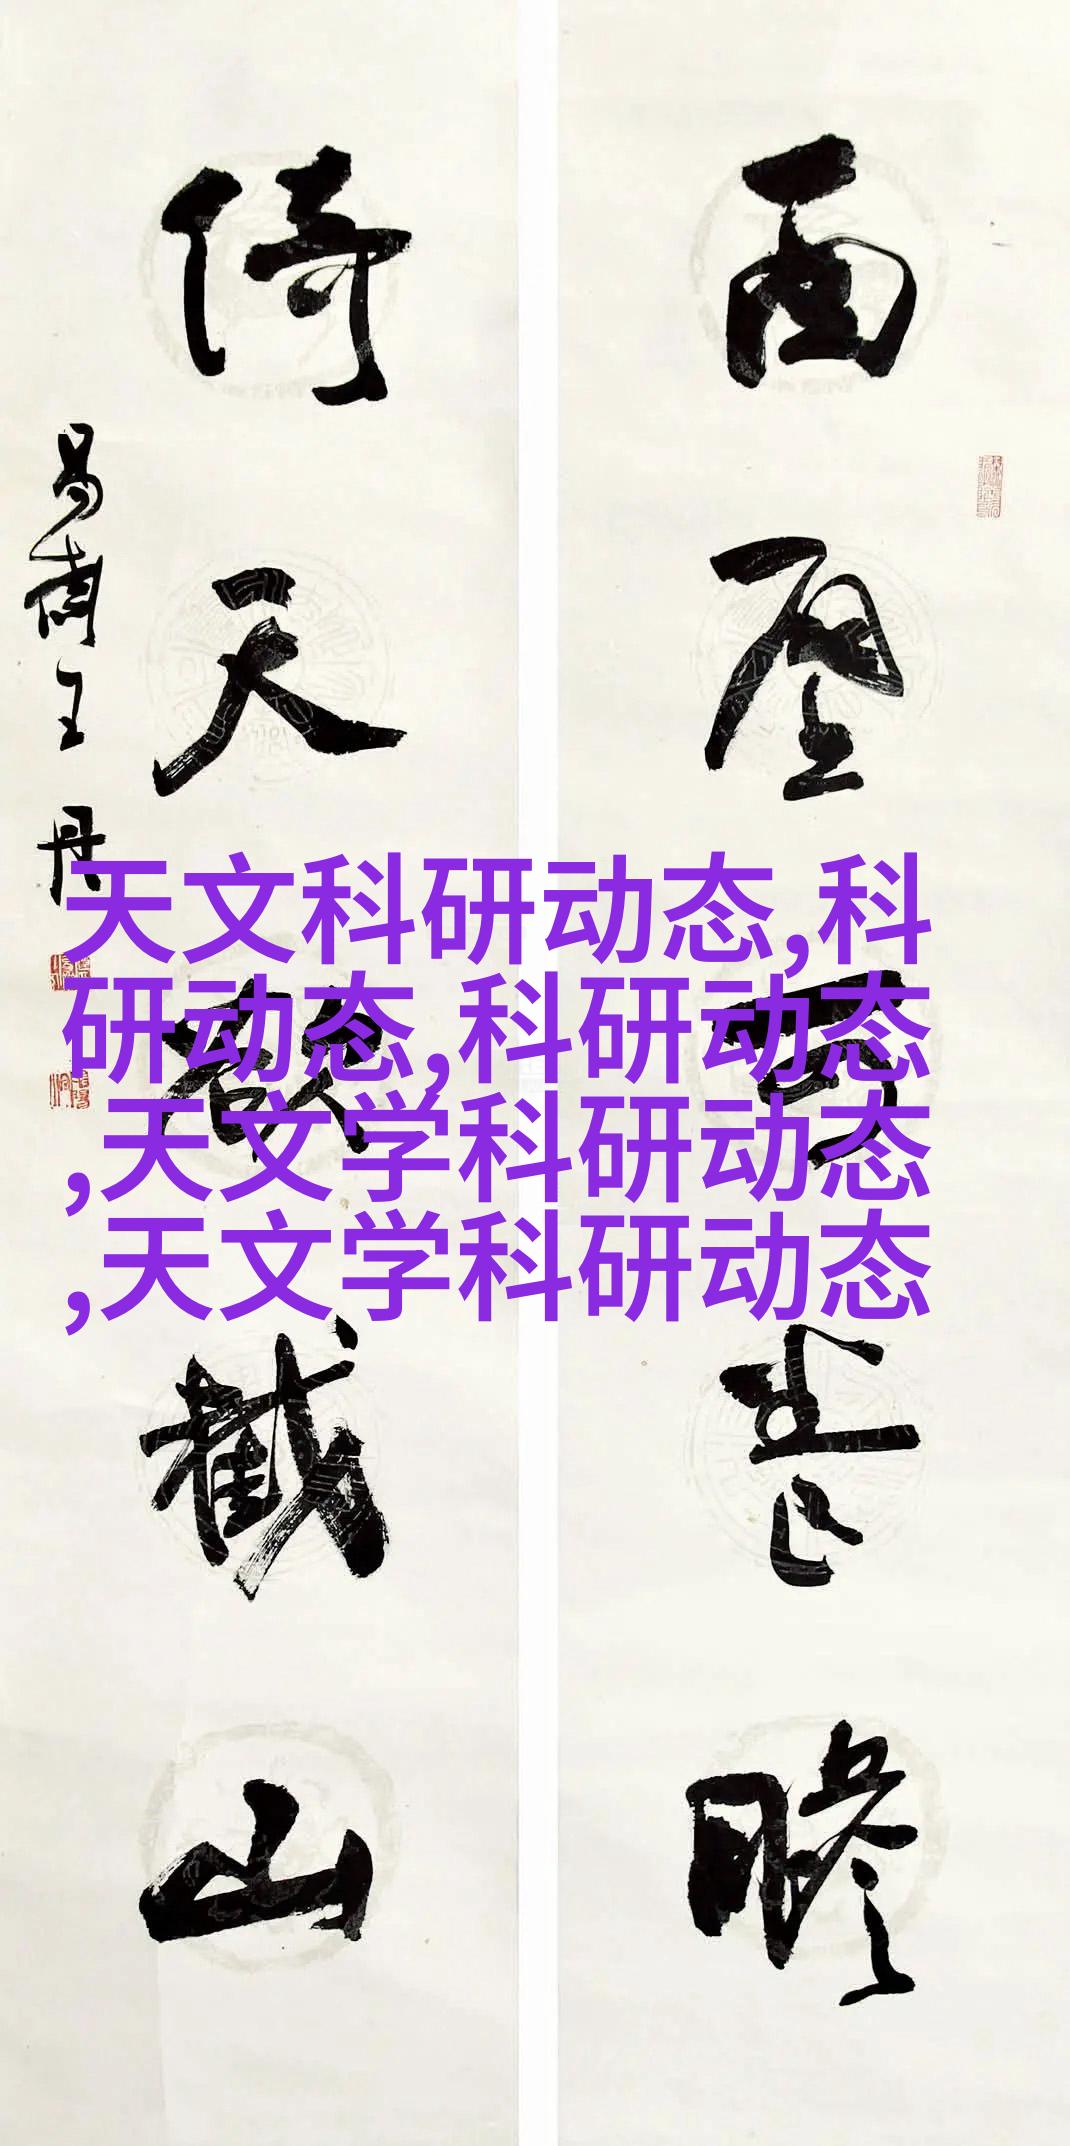 面壁可瞻
倚天截山
天文科研动态,科
研动态,科研动态
,天文学科研动态
,天文学科研动态